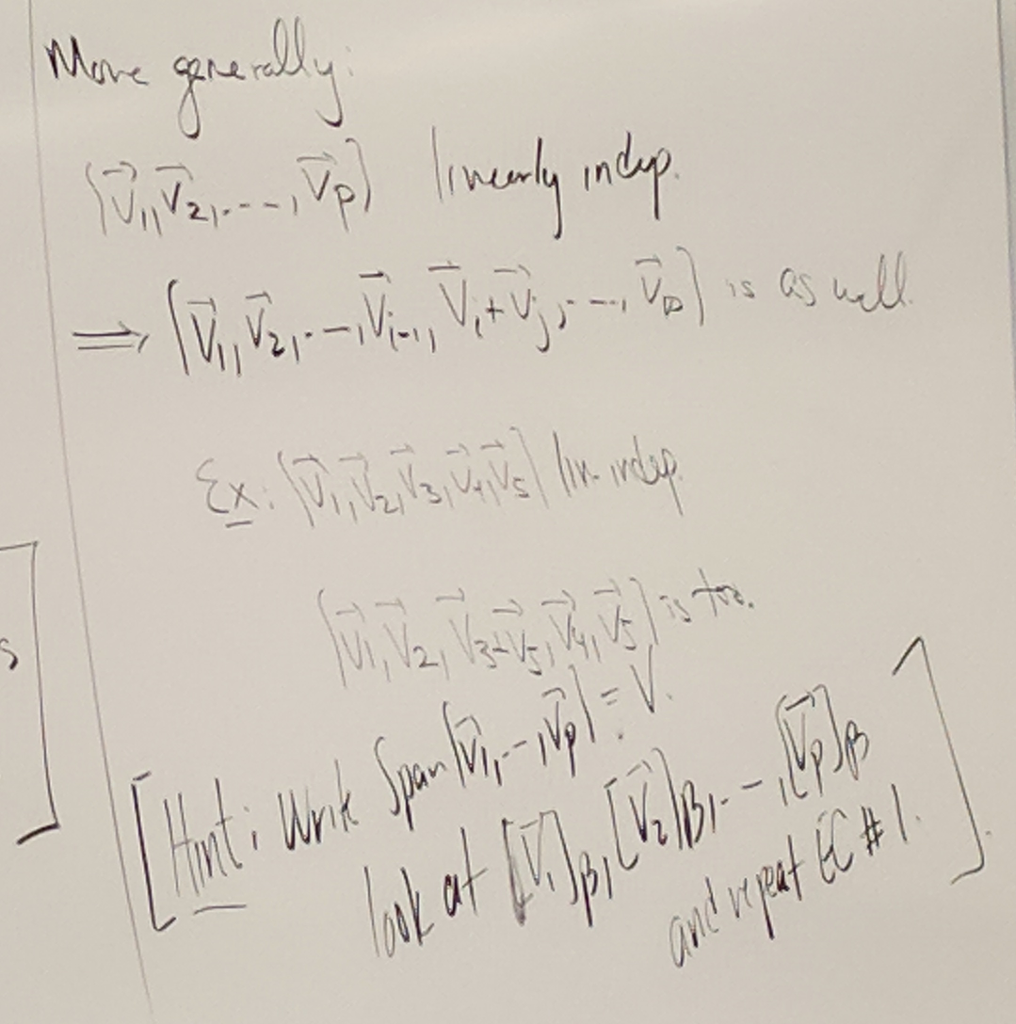 More generally:
{v⃗₁, v⃗₂, ---, v⃗ₚ} linearly indep.
⟹ {v⃗₁, v⃗₂, ---, v⃗ᵢ₋₁, v⃗ᵢ+v⃗ⱼ, ---, v⃗ₚ} is as well.
Ex: {v⃗₁, v⃗₂, v⃗₃, v⃗₄, v⃗₅} lin. indep.
{v⃗₁, v⃗₂, v⃗₃+v⃗₅, v⃗₄, v⃗₅} is too.
[Hint: Write Span{v⃗₁, --, v⃗ₚ} = V.
look at [v⃗₁]_β, [v⃗₂]_β, --, [v⃗ₚ]_β
and repeat EC #1.]
s